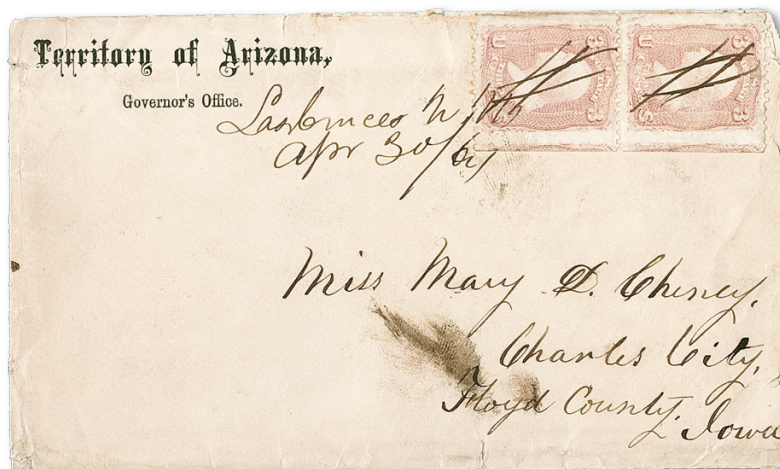 Territory of Arizona,
Governor's Office.
LasCruces N, M
Apr 30/67
U 3 S 3
U 3 S 3
Miss Mary D. Cheney,
Charles City,
Floyd County,
Iowa